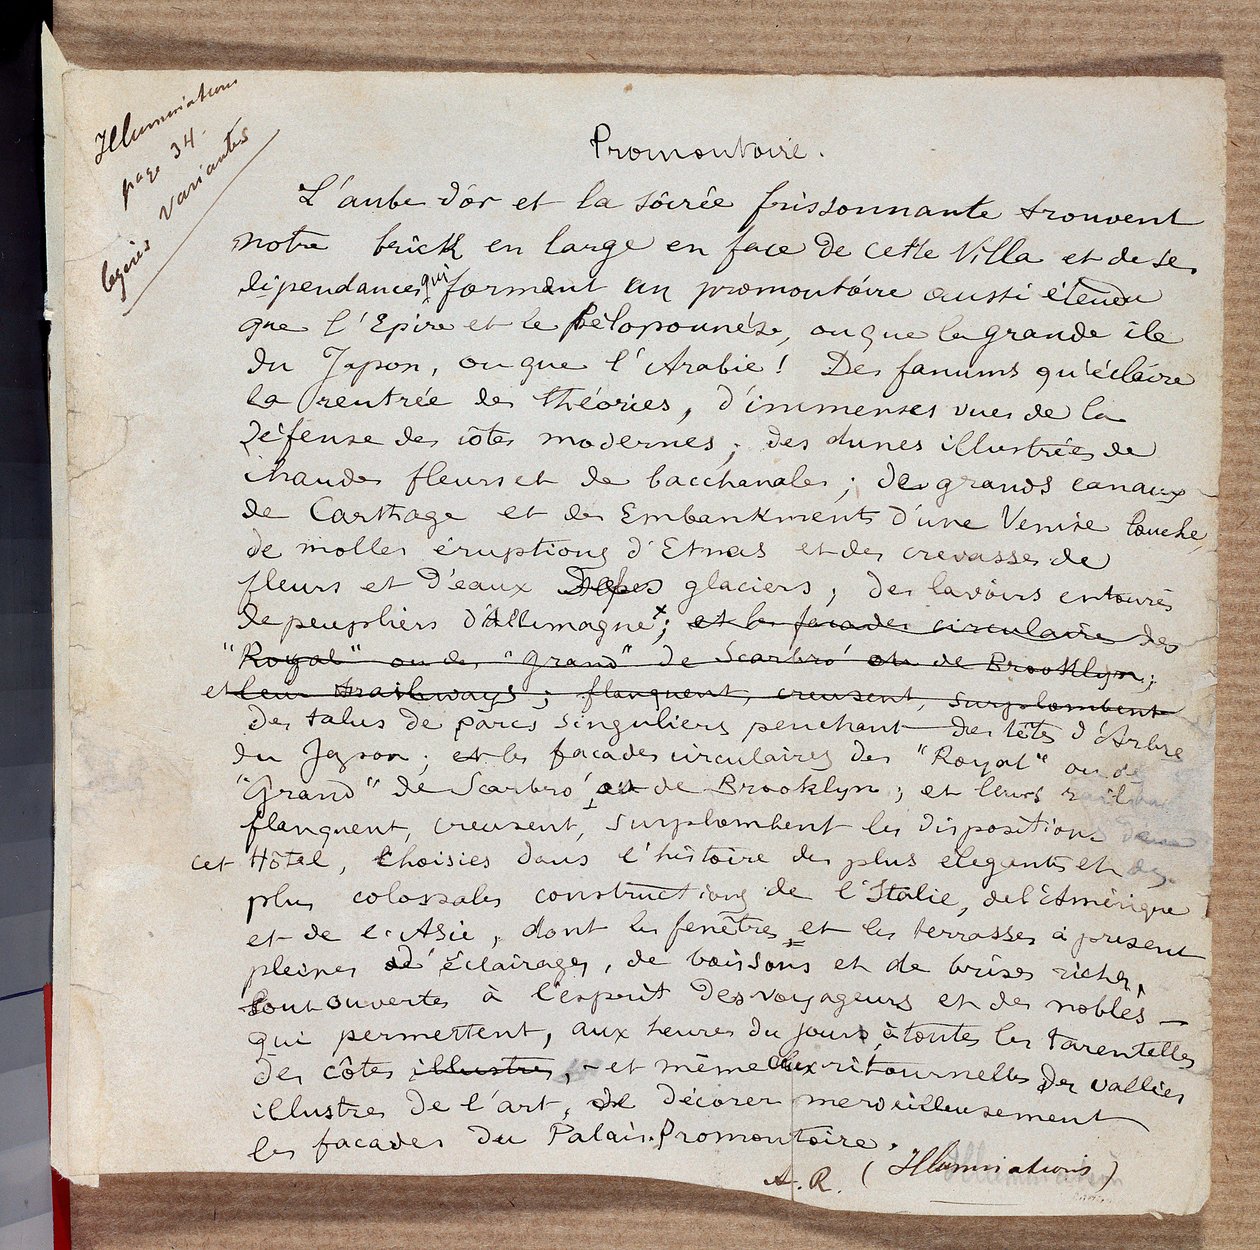 Illuminations
page 34.
légères variantes
Promontoire.
L'aube d'or et la soirée frissonnante trouvent
notre brick en large en face de cette Villa et de ses
dépendances qui forment un promontoire aussi étendu
que l'Epire et le Péloponnèse, ou que la grande île
du Japon, ou que l'Arabie! Des fanums qu'éclaire
la rentrée des théories, d'immenses vues de la
défense des côtes modernes; des dunes illustrées de
chaudes fleurs et de bacchanales; de grands canaux
de Carthage et des Embankments d'une Venise louche,
de molles éruptions d'Etnas et des crevasses de
fleurs et d'eaux des glaciers; des lavoirs entourés
de peupliers d'Allemagne; et les façades circulaires des
"Royal" ou des "Grand" de Scarbro' ou de Brooklyn;
et leurs railways; flanquent, creusent, surplombent
des talus de parcs singuliers penchant des têtes d'Arbre
du Japon; et les façades circulaires des "Royal" ou de
"Grand" de Scarbro' ou de Brooklyn; et leurs
flanquent, creusent, surplombent les dispositions
cet Hôtel, choisies dans l'histoire des plus élégantes et des
plus colossales constructions de l'Italie, de l'Amérique
et de l'Asie, dont les fenêtres et les terrasses à présent
pleines d'éclairages, de boissons et de brises riches,
sont ouvertes à l'esprit des voyageurs et des nobles —
qui permettent, aux heures du jour, à toutes les tarentelles
des côtes illustres, - et même aux ritournelles des vallées
illustres de l'art, de décorer merveilleusement
les façades du Palais. Promontoire.
A. R. (Illuminations)